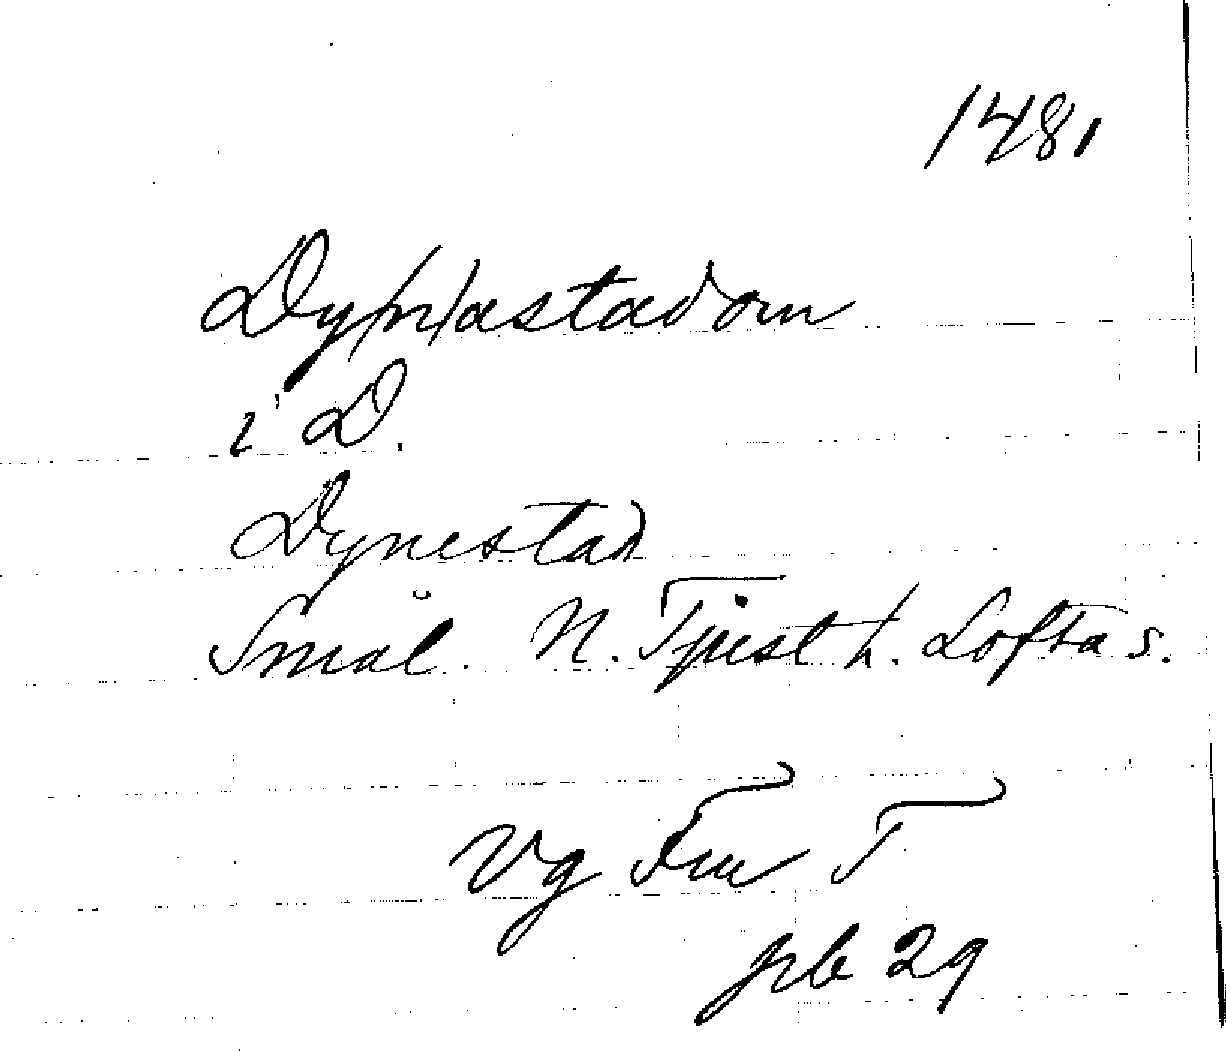 1481
Dy/n/astadom
i D.
Dynestad
Smål. N. Tjust h. Lofta s.
Vg Fru T
prb 29